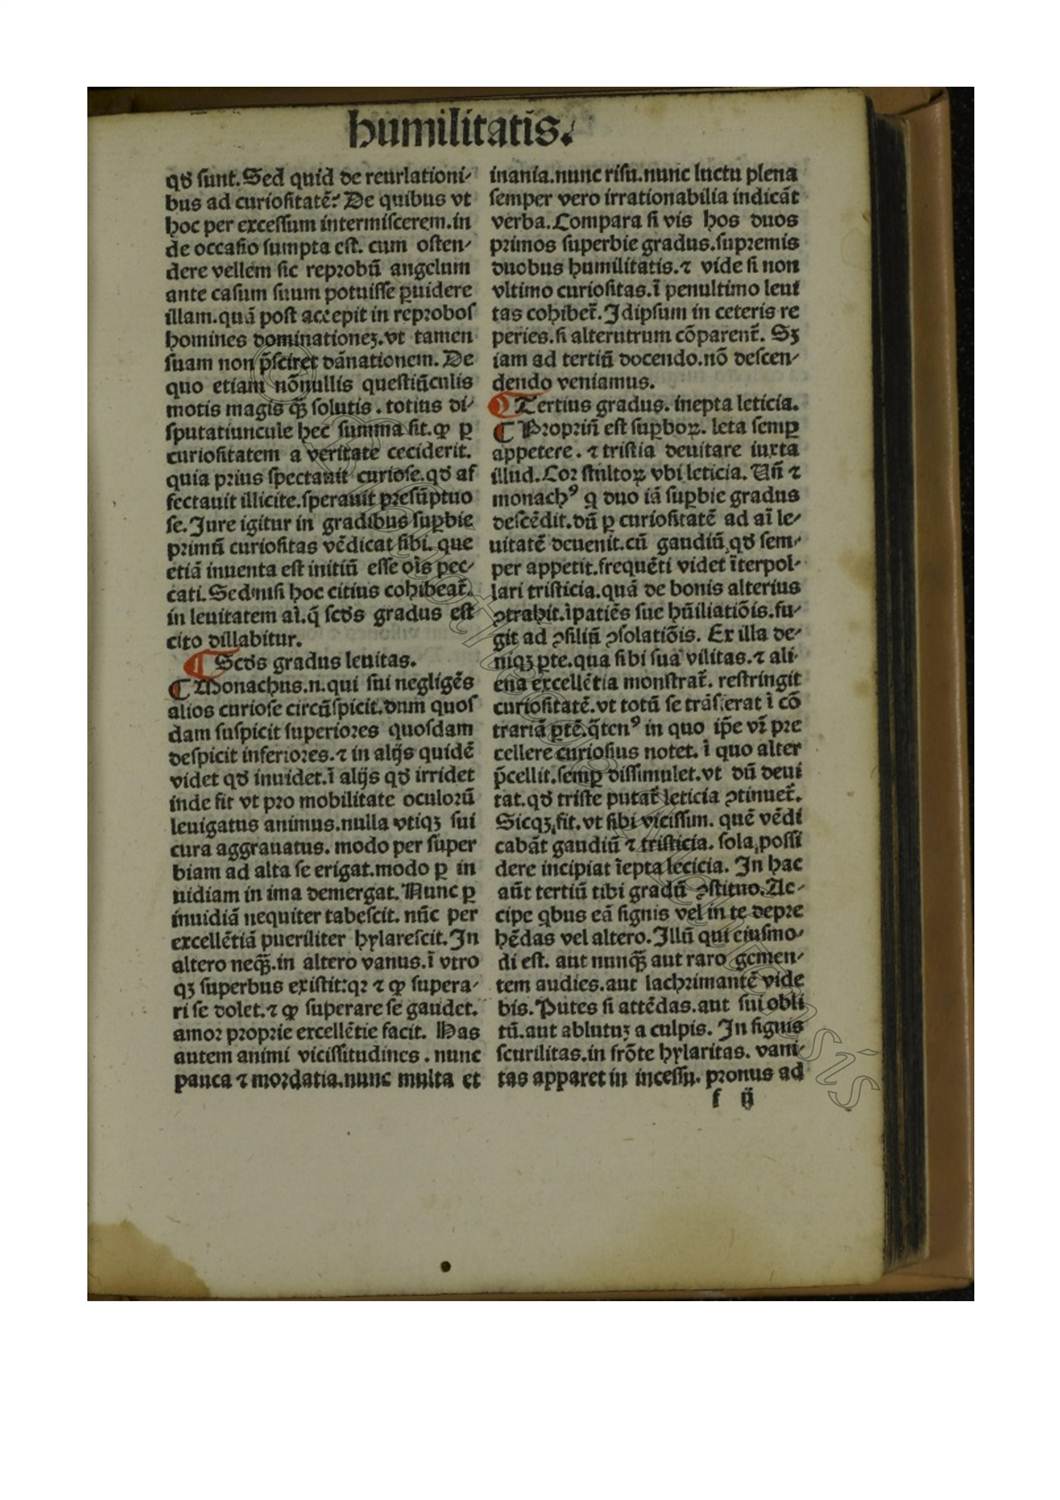 humilitatis.
qď sunt. Sed quid de reuelationi-
bus ad curiositatē? De quibus vt
hoc per excessum intermiscerem. in
de occasio sumpta est. cum osten-
dere vellem sic reprobū angelum
ante casum suum potuisse p̱uidere
illam. quā post accepit in reprobos
homines dominationeꝫ. vt tamen
suam non p̄sciret dānationem. De
quo etiam nōnullis questiūculis
motis magis q̄ꝫ solutis. totius di-
sputatiuncule hec summa sit. ꝙ ꝑ
curiositatem a veritate ceciderit.
quia prius spectauit curiose. qď af
fectauit illicite. sperauit presūptuo
se. Iure igitur in gradibus suꝑbie
primū curiositas vēdicat sibi. que
etiā inuenta est initiū esse oīs pec-
cati. Sed nisi hoc citius cohibeat᷑.
in leuitatem aī. q̄ scďs gradus est
cito dillabitur.
¶ Scďs gradus leuitas.
¶ Monachus. n. qui sui negligēs
alios curiose circūspicit. dum quos
dam suspicit superiores quosdam
despicit inferiores. ⁊ in alijs quidē
videt qď inuidet. ī alijs qď irridet
inde fit vt pro mobilitate oculorū
leuigatus animus. nulla vtiqꝫ sui
cura aggrauatus. modo per super
biam ad alta se erigat. modo ꝑ in
uidiam in ima demergat. Nunc ꝑ
inuidiā nequiter tabescit. nūc per
excellētiā pueriliter hylarescit. In
altero neq̄ꝫ. in altero vanus. ī vtro
qꝫ superbus existit: qꝛ ⁊ ꝙ supera-
ri se dolet. ⁊ ꝙ superare se gaudet.
amor proprie excellētie facit. Has
autem animi vicissitudines. nunc
pauca ⁊ mordatia. nunc multa et
inania. nunc risu. nunc luctu plena
semper vero irrationabilia indicāt
verba. Compara si vis hos duos
primos superbie gradus. supremis
duobus humilitatis. ⁊ vide si non
vltimo curiositas. ī penultimo leui
tas cohibet᷑. Idipsum in ceteris re
peries. si alterutrum cōparent᷑. Sꝫ
iam ad tertiū docendo. nō descen-
dendo veniamus.
¶ Tertius gradus. inepta leticia.
¶ Propriū est suꝑboꝝ. leta semꝑ
appetere. ⁊ tristia deuitare iuxta
illud. Cor stultoꝝ vbi leticia. Uñ ⁊
monachꝰ q̇ duo iā suꝑbie gradus
descēdit. dū ꝑ curiositatē ad aī le-
uitatē deuenit. cū gaudiū, qď sem-
per appetit. frequēti videt īterpol-
lari tristicia. quā de bonis alterius
ꝯtrahit. īpatiēs sue hūiliatiōis. fu-
git ad ꝯsiliū ꝯsolatiōis. Ex illa de-
niqꝫ ꝑte. qua sibi sua vilitas. ⁊ ali-
ena excellētia monstrat᷑. restringit
curiositatē. vt totū se trāsferat ī cō
trariā ꝑtē. q̄tenꝰ in quo ip̄e vr̄ pre
cellere curiosius notet. ī quo alter
p̄cellit. semꝑ dissimulet. vt dū deui
tat. qď triste putat᷑ leticia ꝯtinuet᷑.
Sicqꝫ, fit. vt sibi vicissim. quē vēdi
cabāt gaudiū ⁊ tristicia. sola, possi
dere incipiat īepta lecicia. In hac
aūt tertiū tibi gradū ꝯstituo. Ac-
cipe q̇bus eā signis vel in te depre
hēdas vel altero. Illū qui eiusmo-
di est. aut nunq̄ꝫ aut raro gemen-
tem audies. aut lachrimantē vide
bis. Putes si attēdas. aut sui obli
tū. aut ablutuꝫ a culpis. In signis
scurilitas. in frōte hylaritas. vani-
tas apparet in incessu. pronus ad
f ij